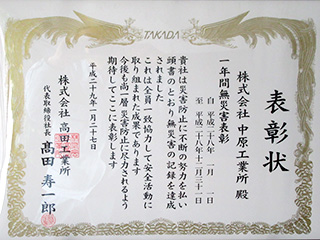 TAKADA
表彰状
株式会社 中原工業所 殿
一年間無災害表彰
自 平成二十八年 一月 一日
至 平成二十八年十二月三十一日
貴社は災害防止に不断の努力を払い
頭書のとおり無災害の記録を達成
されました
これは全員一致協力して安全活動に
取り組まれた成果であります
今後も尚一層災害防止に尽力されるよう
期待してここに表彰します
平成二十九年一月二十七日
株式会社 高田工業所
代表取締役社長 髙田 寿一郎